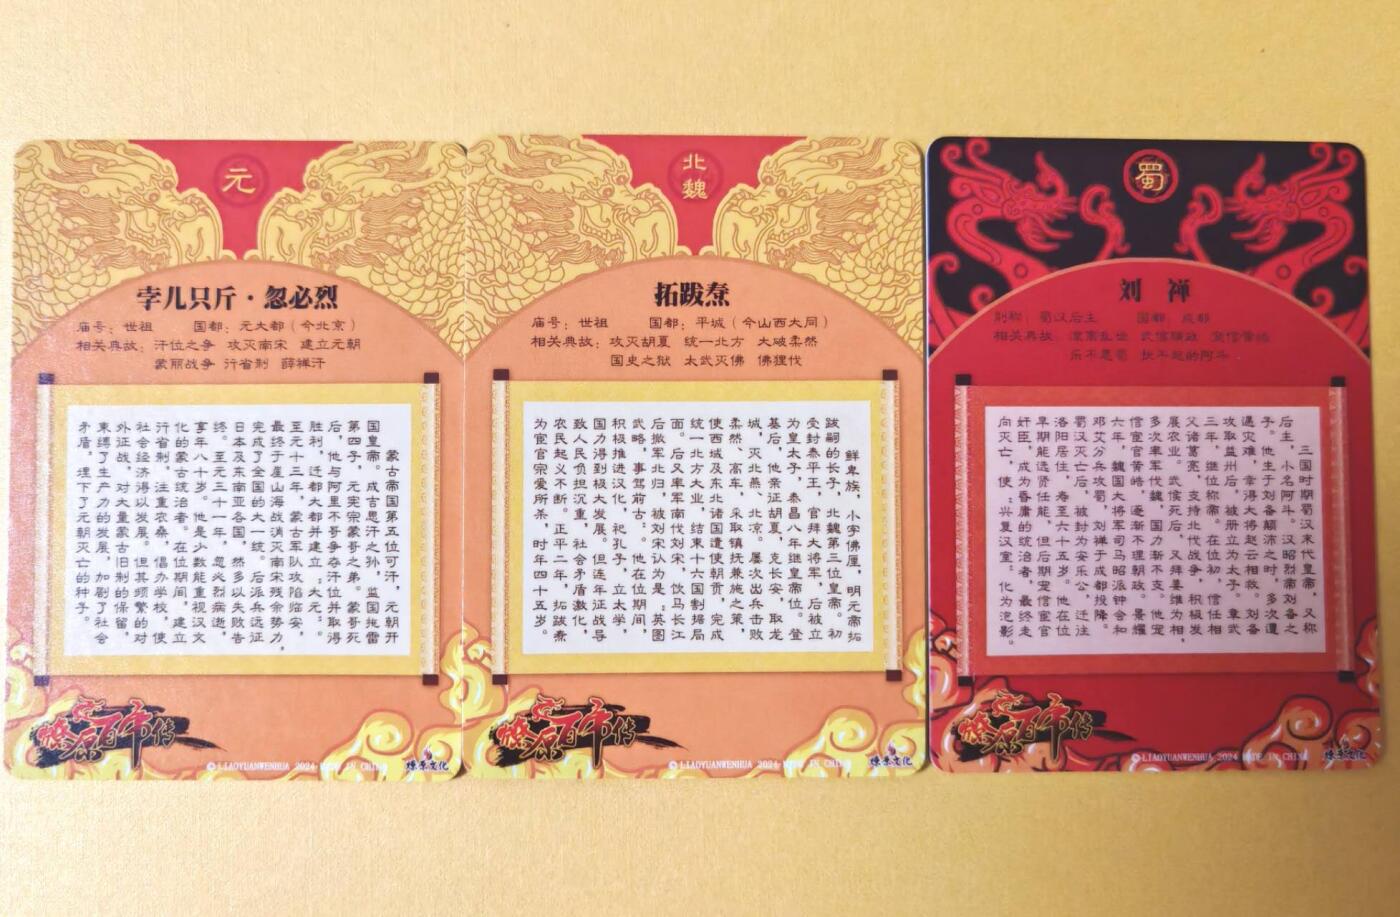 元
孛儿只斤·忽必烈
庙号：世祖 国都：元大都（今北京）
相关典故：汗位之争 攻灭南宋 建立元朝
蒙丽战争 行省制 薛禅汗
蒙古帝国第五位可汗，元朝开
国皇帝。成吉思汗之孙，监国拖雷
第四子，元宪宗蒙哥之弟。蒙哥死
后，他与阿里不哥争夺汗位并取得
胜利，迁都大都并建立“大元”。
至元十三年，蒙古军队攻陷临安，
最终于崖山海战消灭南宋残余势力，
完成了全国的大一统。后派兵远征
日本及东南亚各国，然多以失败告
终。至元三十一年，忽必烈病逝，
享年八十岁。他是少数能重视汉文
化的蒙古统治者。在位期间，建立
行省制，注重农桑，倡办学校，使
社会经济得以发展。但其频繁的对
外征战，对大量蒙古旧制的保留，
束缚了生产力的发展，加剧了社会
矛盾，埋下了元朝灭亡的种子。
燎原百帝传
©LIAOYUANWENHUA 2024 MADE IN CHINA
燎原文化
北
魏
拓跋焘
庙号：世祖 国都：平城（今山西大同）
相关典故：攻灭胡夏 统一北方 大破柔然
国史之狱 太武灭佛 佛狸伐
鲜卑族，小字佛厘，明元帝拓
跋嗣的长子，北魏第三位皇帝。初
受封泰平王，官拜大将军，后被立
为皇太子，泰昌八年继皇帝位。登
基后，他亲征胡夏，克长安，取龙
城，灭北燕、北凉。屡次出兵击败
柔然、高车，采取镇抚兼施之策，
使西域及东北诸国遣使朝贡，完成
统一北方大业，结束十六国割据局
面。后又率军南代刘宋，饮马长江
后撤军北归，被刘宋认为是“英图
武略，事驾前古”。他在位期间，
积极推进汉化，祀孔子，立太学，
国力得到极大发展。但连年征战导
致人民负担沉重，社会矛盾激化，
农民起义不断。正平二年，拓跋焘
为宦官宗爱所杀，时年四十五岁。
燎原百帝传
©LIAOYUANWENHUA 2024 MADE IN CHINA
燎原文化
蜀
刘禅
别称：蜀汉后主 国都：成都
相关典故： 宠信黄皓
乐不思蜀 扶不起的阿斗
三国时期蜀汉末代皇帝，又称
后主，小名阿斗。汉昭烈帝刘备之
子。他生于刘备颠沛之时，多次遭
遇灾难，幸得大将赵云相救。刘备
攻取益州后，被册立为太子。章武
三年，继位称帝。在位初，信任相
父诸葛亮，支持北伐战争，积极发
展农业。武侯死后，又拜姜维为相，
多次率军伐魏，国力渐不支。他宠
信宦官黄皓，逐渐不理朝政。景耀
六年，魏国大将军司马昭派钟会和
邓艾分兵攻蜀，刘禅于成都投降。
蜀汉灭亡后，被封为安乐公，迁往
洛阳居住，寿至六十五岁。他在位
早期能选贤任能，但后期宠信宦官
奸臣，成为昏庸的统治者，最终走
向灭亡，使“兴复汉室”化为泡影。
燎原百帝传
©LIAOYUANWENHUA 2024 MADE IN CHINA
燎原文化